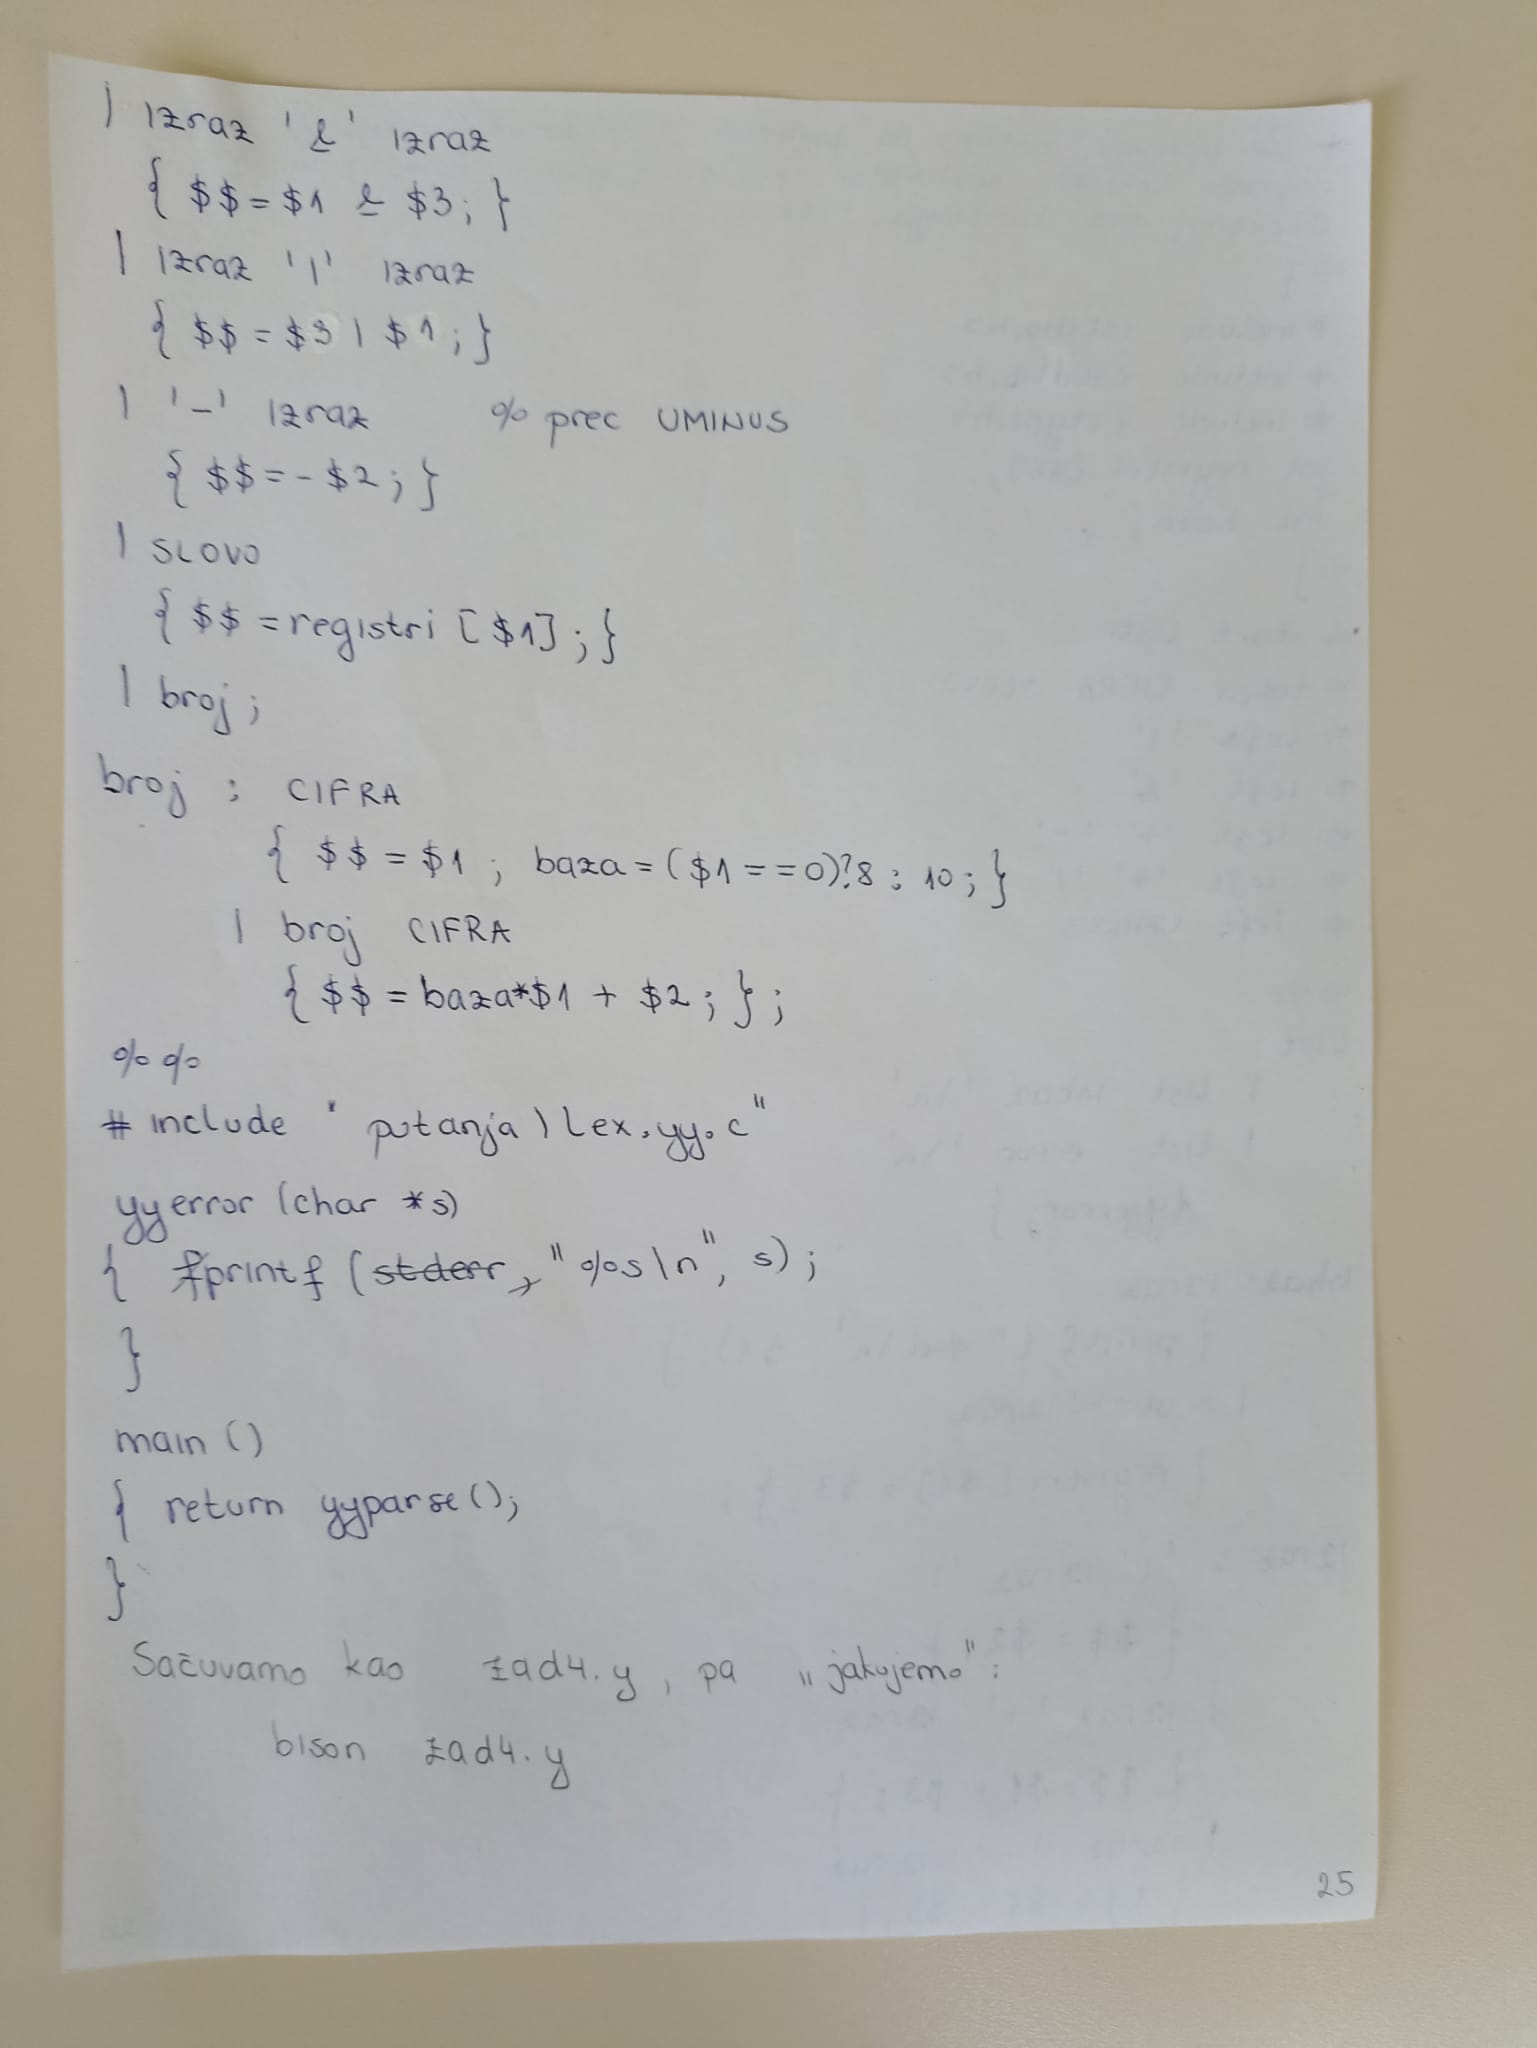 | izraz '&' izraz
{ $$ = $1 & $3; }
| izraz '|' izraz
{ $$ = $3 | $1; }
| '-' izraz % prec UMINUS
{ $$ = - $2; }
| SLOVO
{ $$ = registri [$1]; }
| broj;
broj : CIFRA
{ $$ = $1; baza = ($1 == 0)?8 : 10; }
| broj CIFRA
{ $$ = baza*$1 + $2; };
%%
# include "putanja\Lex.yy.c"
yyerror (char *s)
{ fprintf (stderr, "%s\n", s);
}
main ()
{ return yyparse();
}
Sačuvamo kao zad4.y, pa „jakujemo":
bison zad4.y
25